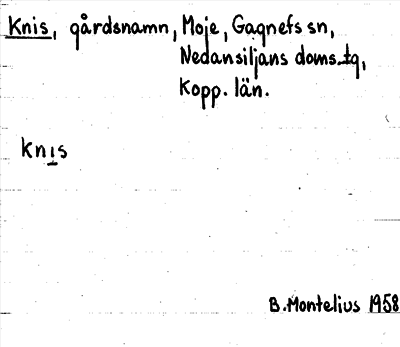 Knis, gårdsnamn, Moje, Gagnefs sn,
Nedansiljans doms.tg,
Kopp. län.
knıs
B. Montelius 1958